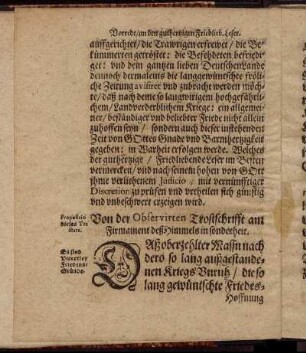 Vorrede/an den gutherzigen Friedlieb. Leser.
auffgerichtet/die Trawrigen erfrewet/die Be-
kümmerten getröstet: die Befehdeten befried-
get: vnd dem gantzen lieben Deutschen Lande
dennoch dermaleins die langgewünschte fröli-
che Zeitung avisiret vnd zubracht werden möch-
te/daß nach deme so langwirigem hochgefährli-
chem/Landverderblichem Kriege: ein allgemei-
ner/beständiger vnd beliebter Friede nicht allein
zuhoffen seyn/sondern auch dieser instehenden
Zeit von GOttes Gnade vnd Barmhertzigkeit
gegeben: in Warheit erfolgen werde. Welches
der gutherzige/Friedliebende Leser im Besten
vermercken/vnd nach seinem hohen von GOtt
ihme verliehenem Judicio, mit vernünfftiger
Discretion zu prüfen vnd vrtheilen sich günstig
vnd vnbeschwert erzeigen wird.
Von der Observirten Trostschrifft am
Firmament deß Himmels in sonderheit.
DAß oberzehlter Massn nach
ders so lang außgestande-
nen Kriegs Vnruh/die so
lang gewüntschte Friedes-
Hoffnung